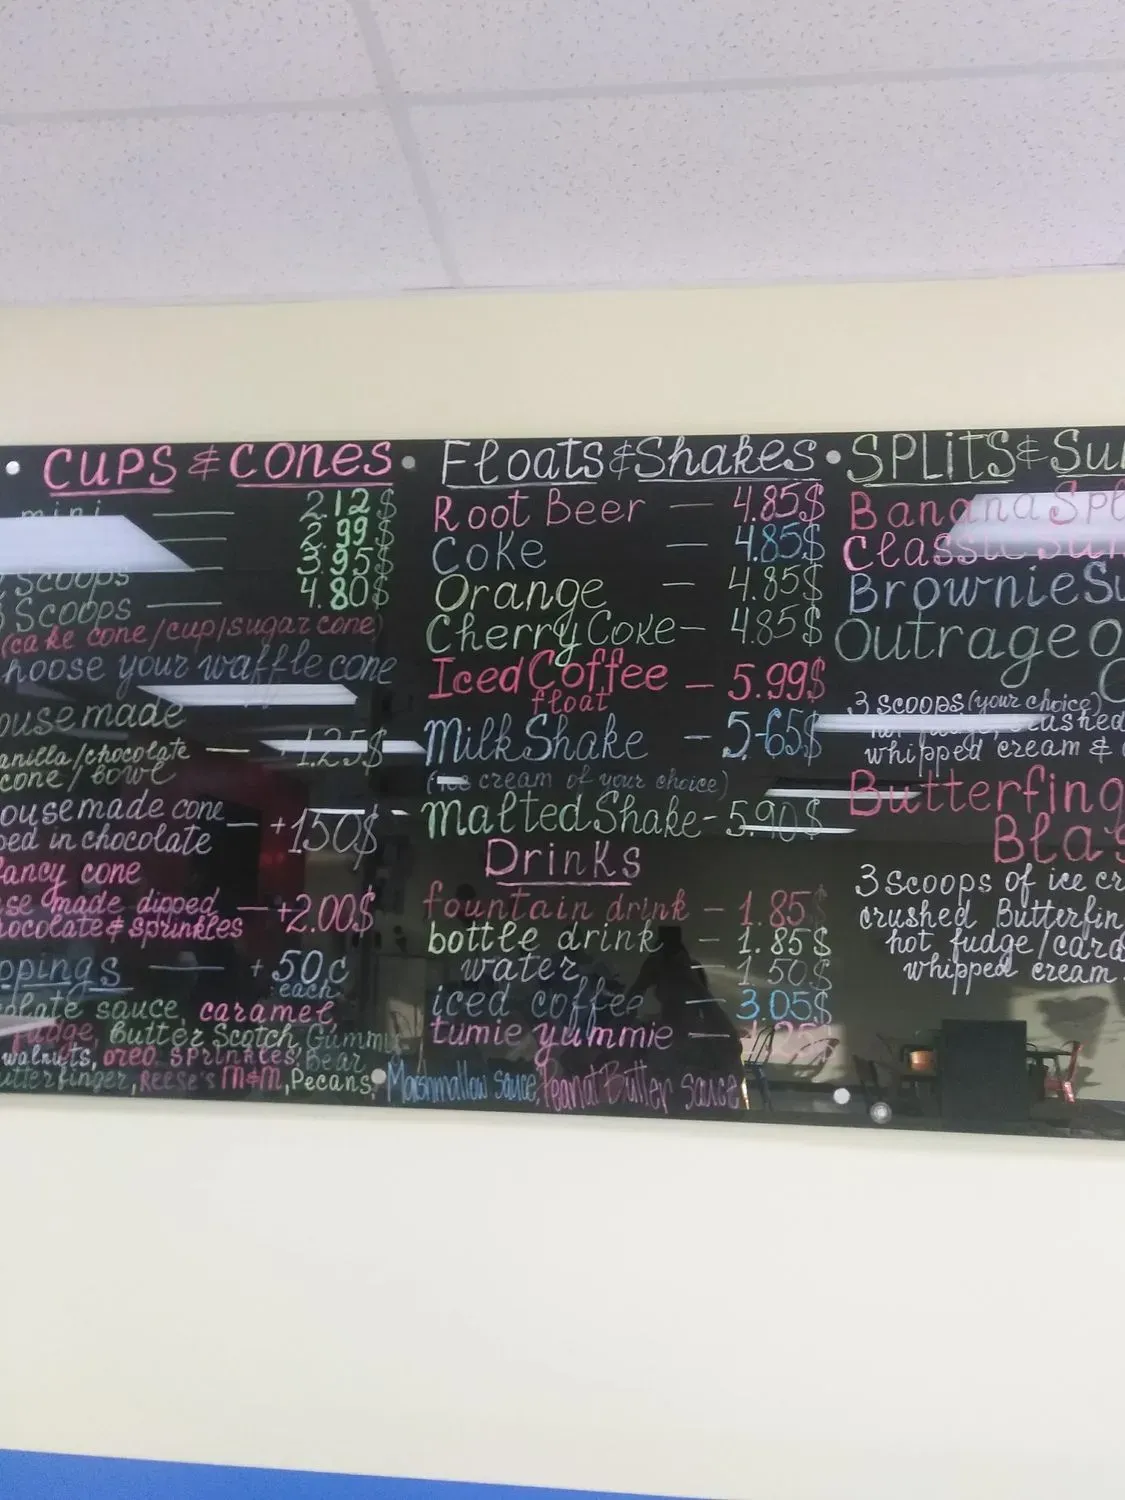 CUPS & CONES
mini 2.12$
2.99$
Scoops 3.95$
Scoops 4.80$
(cake cone/cup/sugar cone)
hoose your waffle cone
ouse made
anilla/chocolate 1.25$
cone/bowl
ouse made cone
ped in chocolate +1.50$
ancy cone
se made dipped
hocolate & sprinkles +2.00$
ppings + 50c
each
olate sauce, caramel
fudge, Butter Scotch, Gummi
walnuts, oreo, sprinkles, Bear
utterfinger, Reese's M&M, Pecans, Marshmallow sauce, Peanut Butter sauce
Floats & Shakes
Root Beer — 4.85$
Coke — 4.85$
Orange — 4.85$
Cherry Coke — 4.85$
Iced Coffee — 5.99$
float
MilkShake - 5.65$
(ice cream of your choice)
Malted Shake - 5.90$
Drinks
fountain drink - 1.85$
bottle drink - 1.85$
water - 1.50$
iced coffee — 3.05$
tumie yummie —
SPLITS & Su
Banana Spl
Classic Sun
Brownie Su
Outrageo
3 scoops (your choice)
hot fudge, crushed
whipped cream &
Butterfing
Blas
3 scoops of ice cr
crushed Butterfin
hot fudge/cara
whipped cream